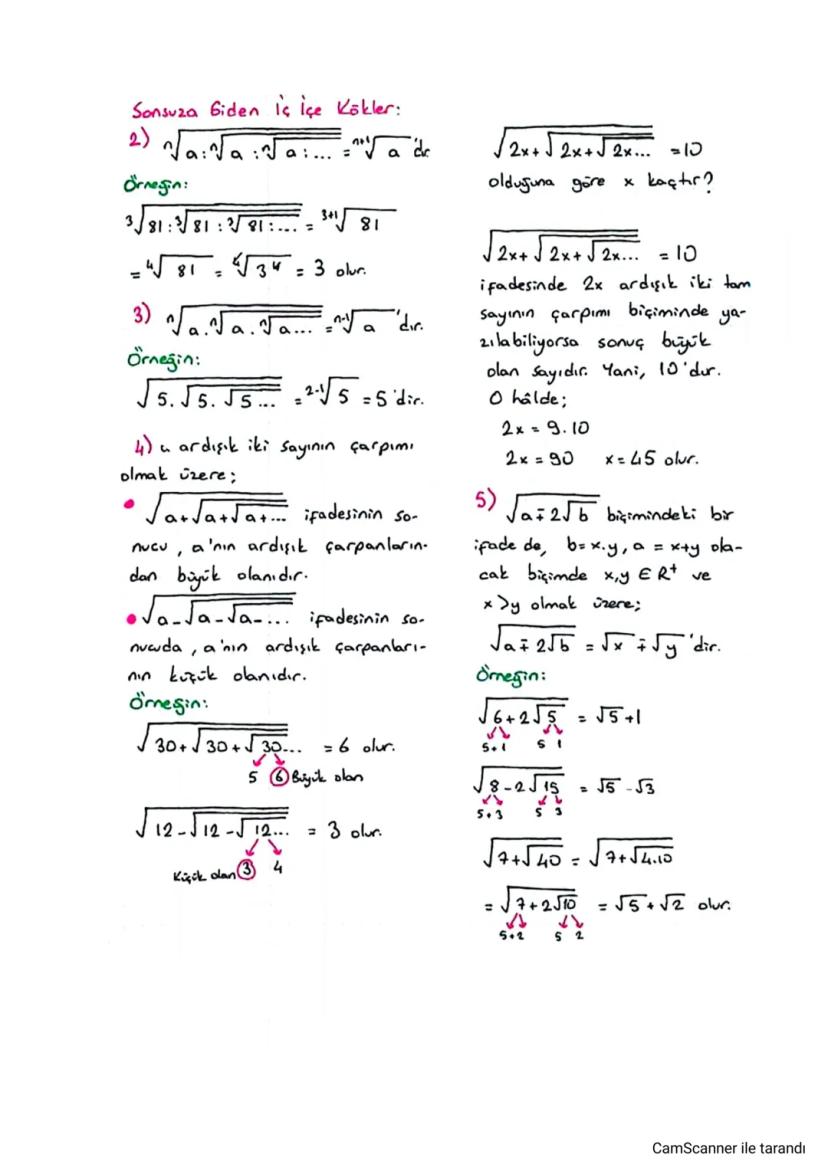 Sonsuza Giden İç İçe Kökler:
2) ⁿ√(a:ⁿ√(a:ⁿ√(a:...))) = ⁿ⁺¹√a 'dır
Örneğin:
³√(81:³√(81:³√(81:...))) = ³⁺¹√81
= ⁴√81 = ⁴√(3⁴) = 3 olur.
3) ⁿ√(a.ⁿ√(a.ⁿ√(a...))) = ⁿ⁻¹√a 'dır.
Örneğin:
√(5.√(5.√(5...))) = ²⁻¹√5 = 5'dir.
4) a ardışık iki sayının çarpımı
olmak üzere;
• √(a+√(a+√(a+...))) ifadesinin so-
nucu, a'nın ardışık çarpanların-
dan büyük olanıdır.
• √(a-√(a-√(a-...))) ifadesinin so-
nucuda, a'nın ardışık çarpanları-
nın küçük olanıdır.
Örneğin:
√(30+√(30+√(30...))) = 6 olur.
5 6 Büyük olan
√(12-√(12-√(12...))) = 3 olur.
Küçük olan 3 4
√(2x+√(2x+√(2x...))) = 10
olduğuna göre x kaçtır?
√(2x+√(2x+√(2x...))) = 10
ifadesinde 2x ardışık iki tam
sayının çarpımı biçiminde ya-
zılabiliyorsa sonuç büyük
olan sayıdır. Yani, 10'dur.
O hâlde;
2x = 9.10
2x = 90 x = 45 olur.
5) √(a∓2√b) biçimindeki bir
ifade de, b=x.y, a = x+y ola-
cak biçimde x,y ∈ R⁺ ve
x>y olmak üzere;
√(a∓2√b) = √x ∓ √y 'dir.
Örneğin:
√(6+2√5) = √5+1
5+1 5 1
√(8-2√15) = √5-√3
5+3 5 3
√(7+√40) = √(7+√4.10)
= √(7+2√10) = √5+√2 olur.
5+2 5 2
CamScanner ile tarandı